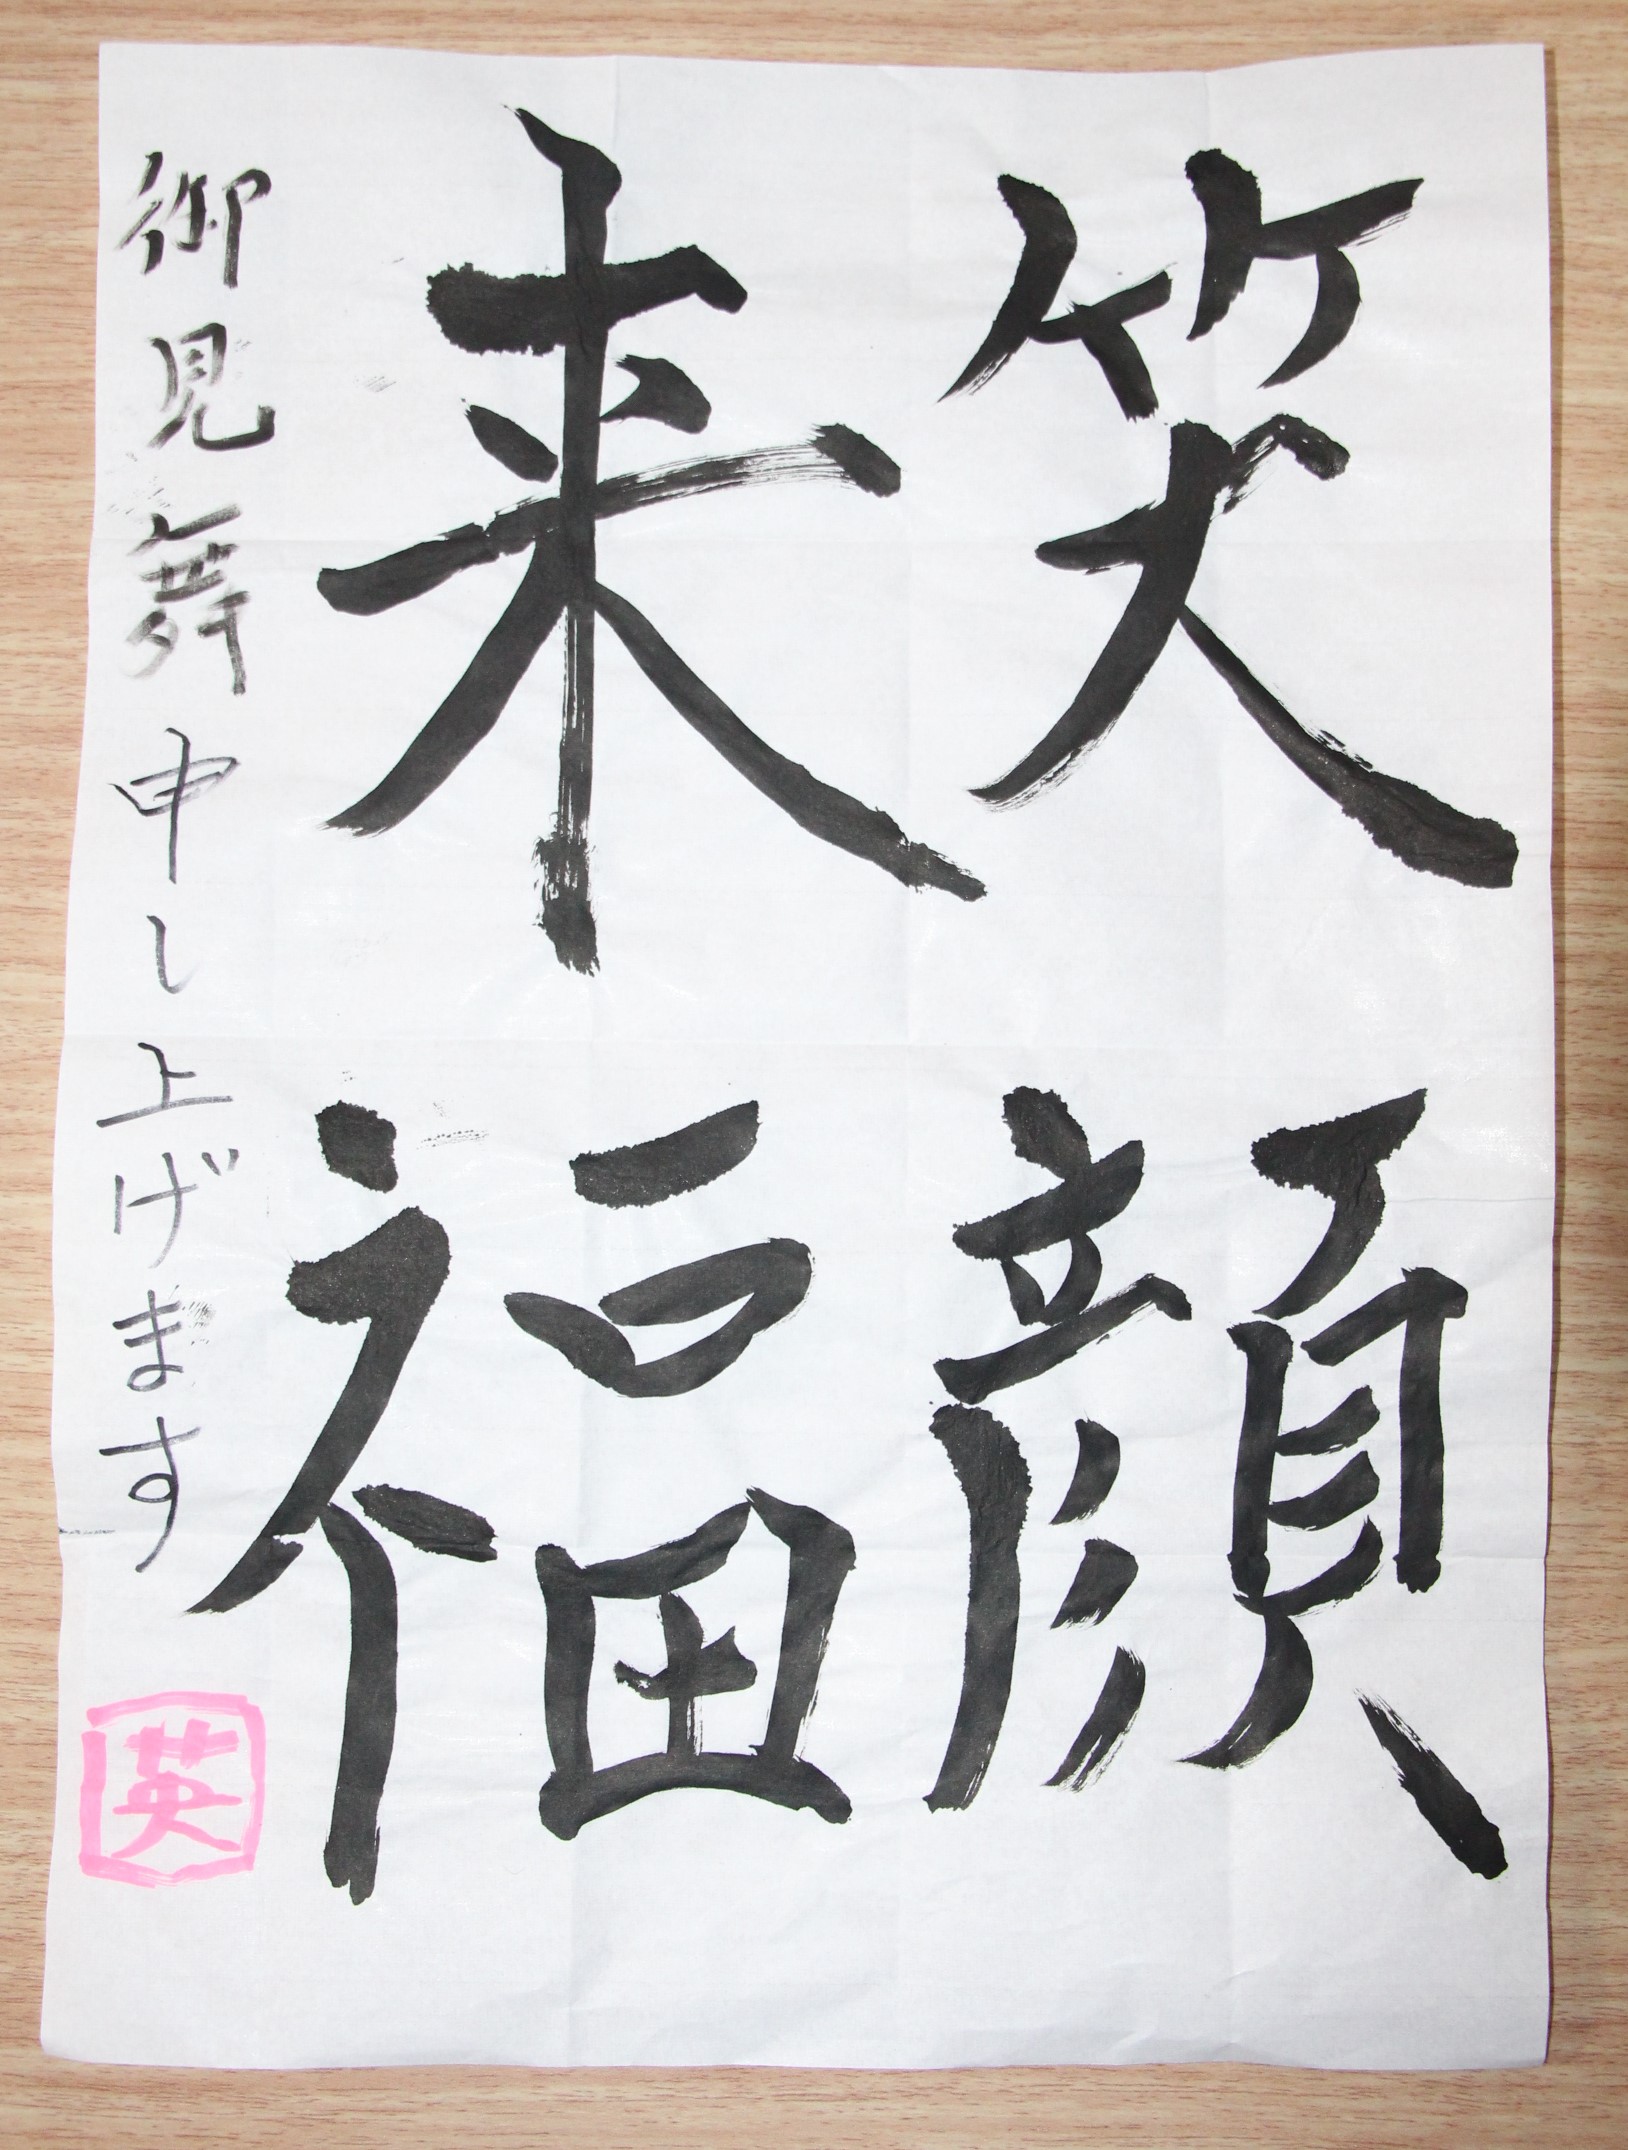 笑顔
来福
御見舞申し上げます
英